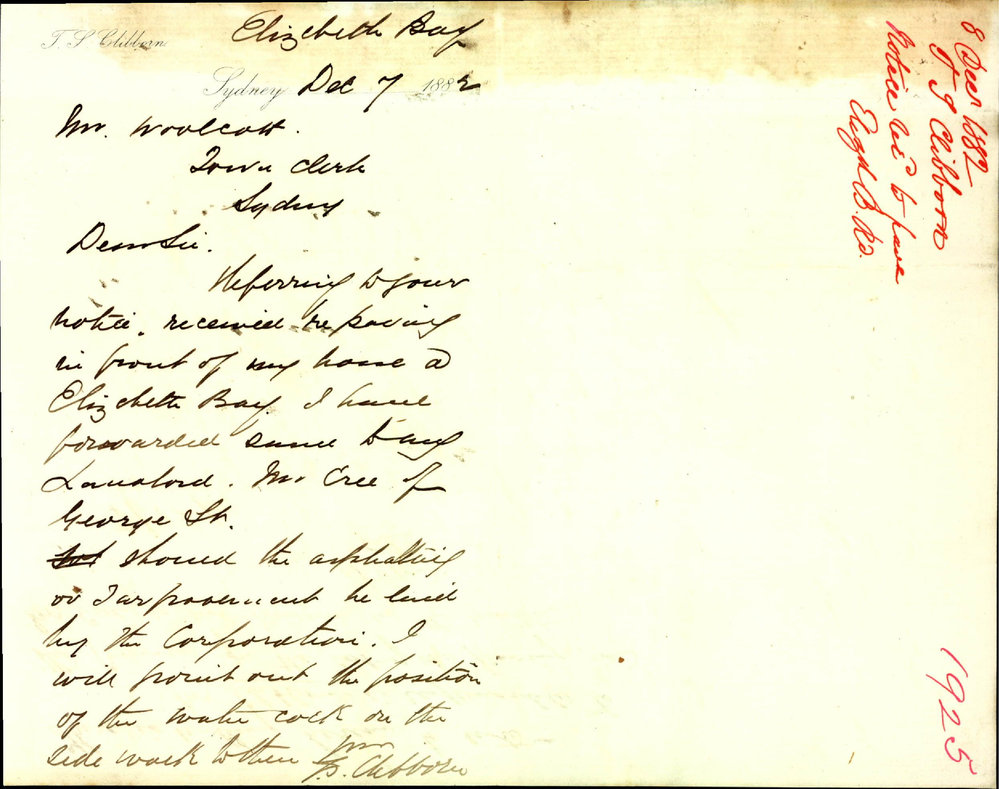 T. S. Clibborn
Elizebeth Bay
Sydney Dec 7 1882
Mr. Woolcott.
Town Clerk
Sydney
Dear Sir.
Referring to your
notice. received re paving
in front of my house at
Elizebeth Bay. I have
forwarded same to my
Landlord. Mr Cree of
George St.
should the asphalting
or Tarpavement be laid
by the Corporation. I
will point out the position
of the water cock on the
side walk to them Yrs
T. S. Clibborn
8 Decr 1882
T S Clibborn
Notice to pave
Elizth B. Rd.
1925